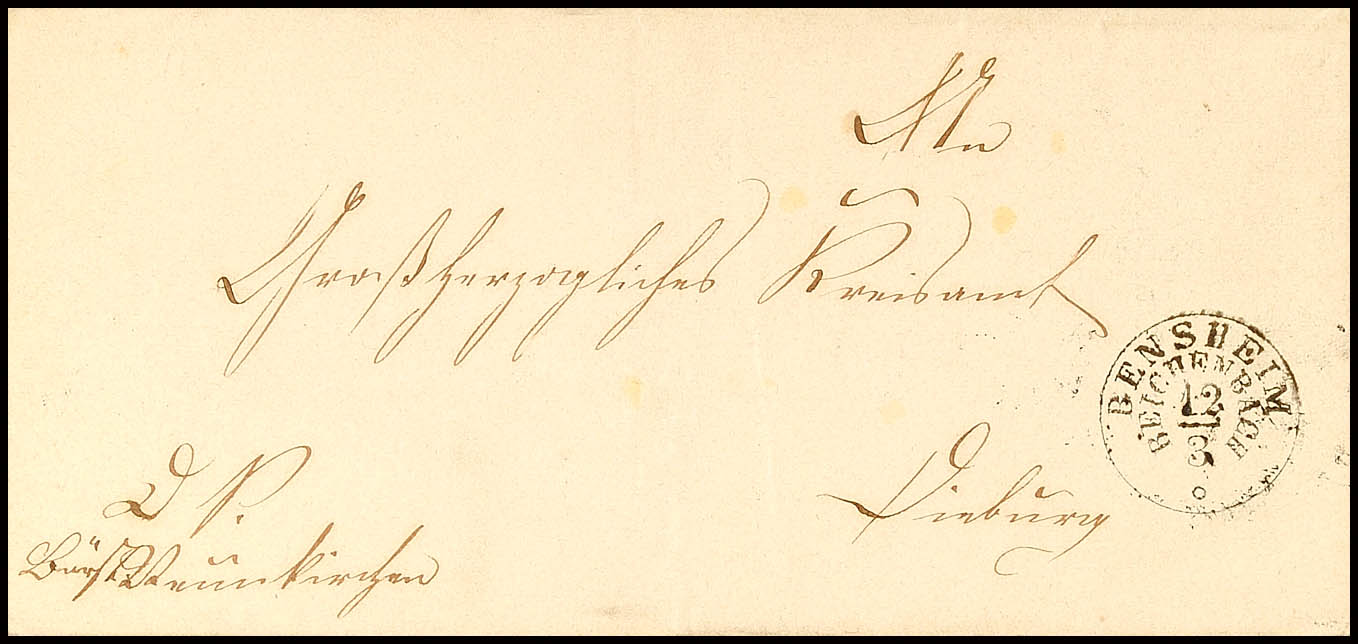 An
Großherzogliches Kreisamt
Dieburg
D. S.
Bürgst. Neunkirchen
BENSHEIM
REICHENBACH
12
8